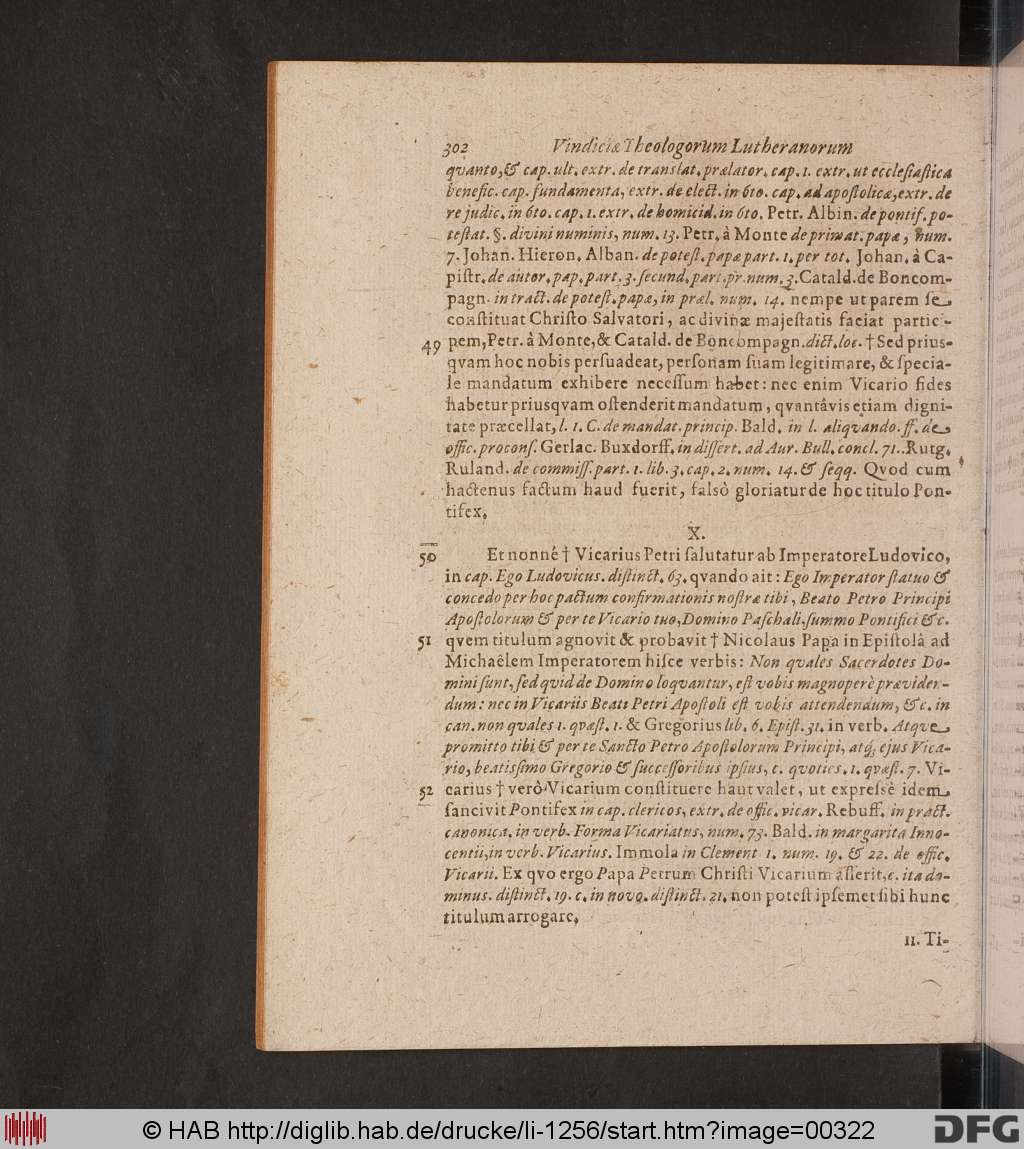 302 Vindiciæ Theologorum Lutheranorum
qvanto, & cap. ult. extr. de translat. prælator. cap. 1. extr. ut ecclesiastica
benefic. cap. fundamenta, extr. de elect. in 6to. cap. ad apostolicæ, extr. de
re judic. in 6to. cap. 1. extr. de homicid. in 6to. Petr. Albin. de pontif. po-
testat. §. divini numinis, num. 13. Petr. à Monte de primat. papæ, num.
7. Johan. Hieron. Alban. de potest. papæ part. 1. per tot. Johan. à Ca-
pistr. de autor. pap. part. 3. secund. part. pr. num. 3. Catald. de Boncom-
pagn. in tract. de potest. papæ, in præl. num. 14. nempe ut parem se
constituat Christo Salvatori, ac divinæ majestatis faciat partic-
49 pem, Petr. â Monte, & Catald. de Boncompagn. dict. loc. † Sed prius-
qvam hoc nobis persuadeat, personam suam legitimare, & specia-
le mandatum exhibere necessum habet: nec enim Vicario fides
habetur priusqvam ostenderit mandatum, qvantâvis etiam digni-
tate præcellat, l. 1. C. de mandat. princip. Bald. in l. aliqvando. ff. de
offic. procons. Gerlac. Buxdorff. in dissert. ad Aur. Bull. concl. 71.. Rutg.
Ruland. de commiss. part. 1. lib. 3. cap. 2. num. 14. & seqq. Qvod cum
hactenus factum haud fuerit, falsò gloriatur de hoc titulo Pon-
tifex.
X.
50 Et nonné † Vicarius Petri salutatur ab Imperatore Ludovico,
in cap. Ego Ludovicus. distinct. 63. qvando ait: Ego Imperator statuo &
concedo per hoc pactum confirmationis nostræ tibi, Beato Petro Principi
Apostolorum & per te Vicario tuo, Domino Paschali, summo Pontifici &c.
51 qvem titulum agnovit & probavit † Nicolaus Papa in Epistolâ ad
Michaêlem Imperatorem hisce verbis: Non qvales Sacerdotes Do-
mini sunt, sed qvid de Domino loqvantur, est vobis magnoperè prævidem-
dum: nec in Vicariis Beati Petri Apostoli est vobis attendendum, &c. in
can. non qvales 1. qvæst. 1. & Gregorius lib. 6. Epist. 31. in verb. Atqve
promitto tibi & per te Sancto Petro Apostolorum Principi, atq; ejus Vica-
rio, beatissimo Gregorio & successoribus ipsius, c. qvoties. 1. qvæst. 7. Vi-
52 carius † verô Vicarium constituere haut valet, ut expressè idem
sancivit Pontifex in cap. clericos, extr. de offic. vicar. Rebuff. in pract.
canonica. in verb. Forma Vicariatus, num. 73. Bald. in margarita Inno-
centii, in verb. Vicarius. Immola in Clement 1. num. 19. & 22. de offic.
Vicarii. Ex qvo ergo Papa Petrum Christi Vicarium asserit, c. ita do-
minus. distinct. 19. c. in novo. distinct. 21. non potest ipsemet sibi hunc
titulum arrogare.
11. Ti-
© HAB http://diglib.hab.de/drucke/li-1256/start.htm?image=00322
DFG